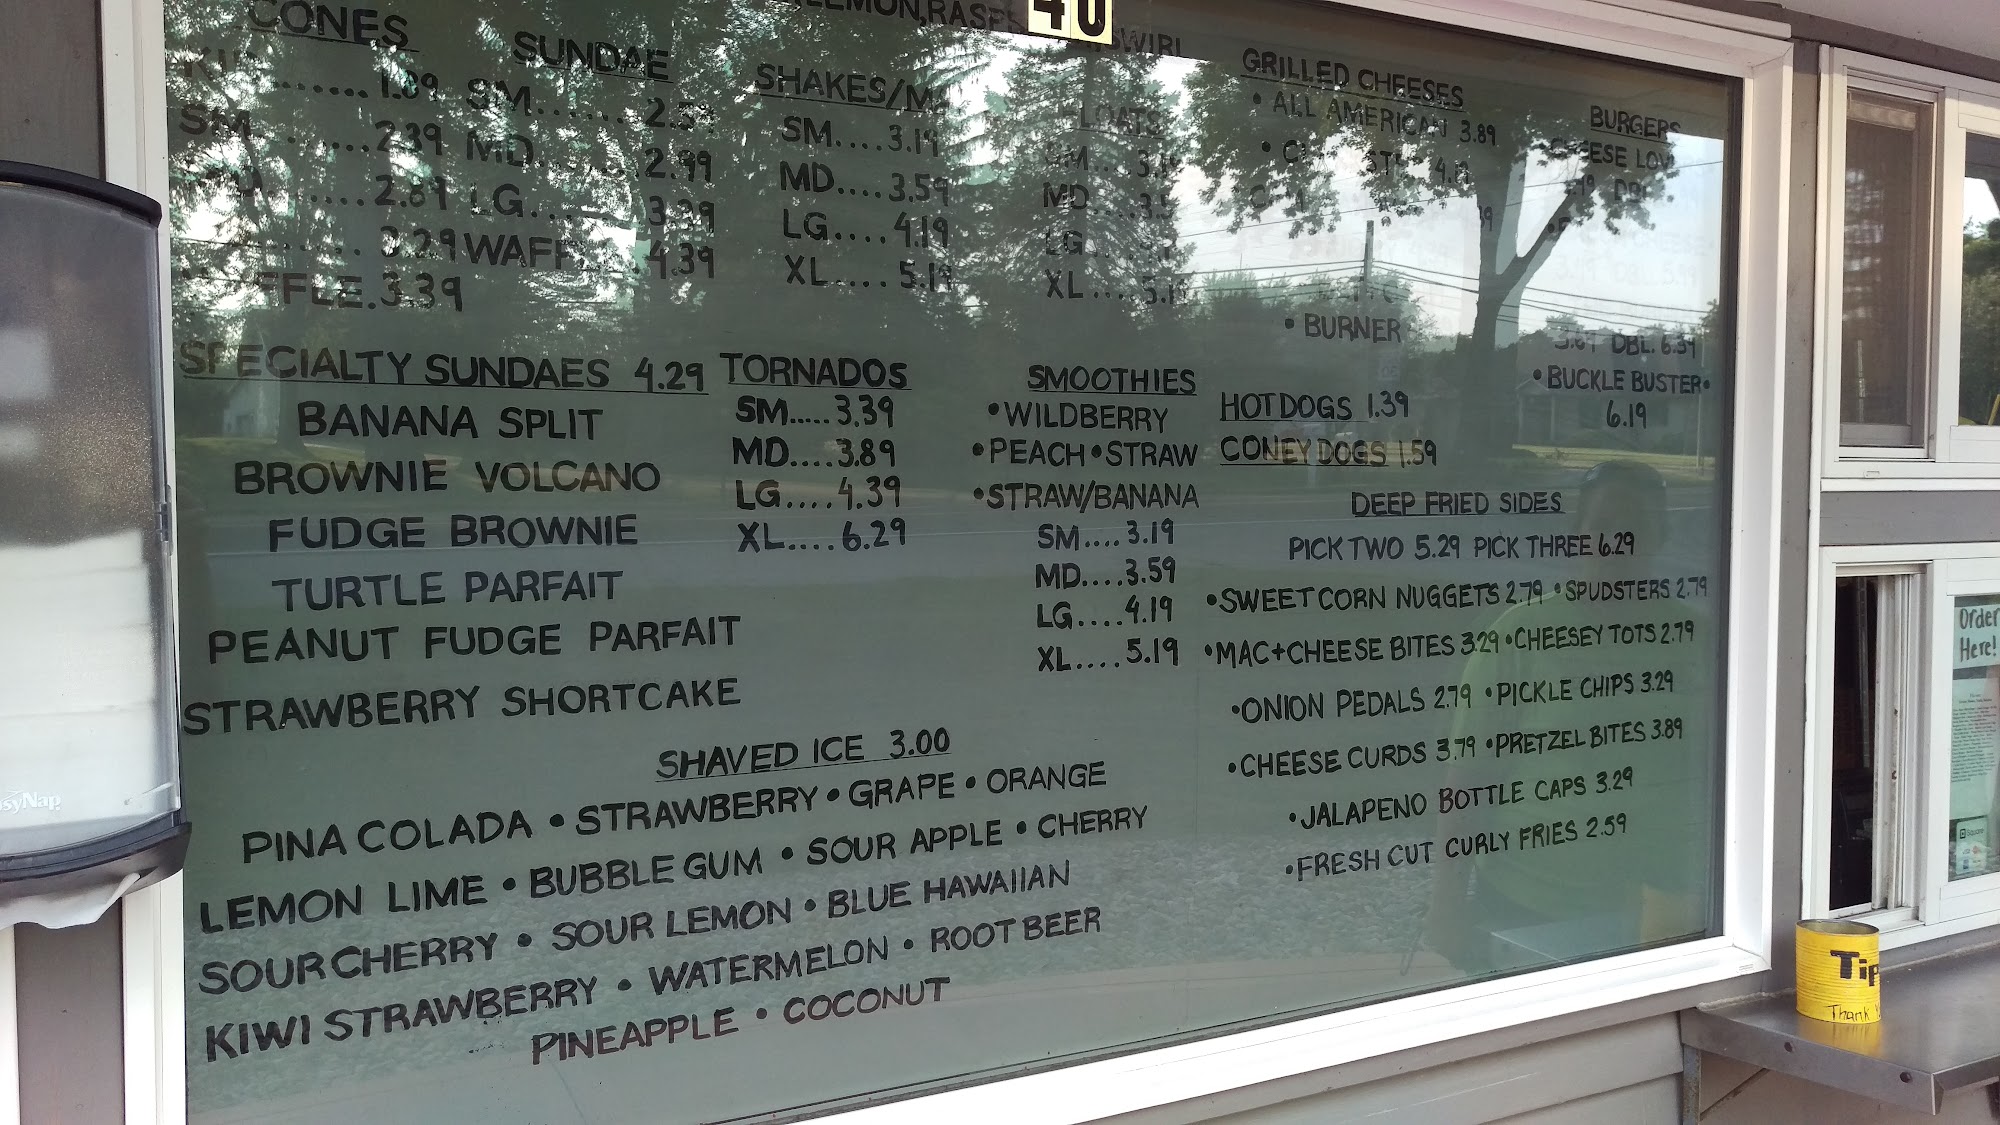 40
CONES
1.89
SM.......2.39
....2.89
3.29
FFLE.3.39
SUNDAE
SM......2.59
MD......2.99
LG......3.39
WAFFLE..4.39
SHAKES/
SM....3.19
MD....3.59
LG....4.19
XL....5.19
FLOATS
SM....3.19
MD....3.5
LG
XL....5.19
GRILLED CHEESES
• ALL AMERICAN 3.89
4.19
• BURNER
BURGERS
CHEESE
DBL
3.69 DBL. 6.39
• BUCKLE BUSTER •
6.19
SPECIALTY SUNDAES 4.29
BANANA SPLIT
BROWNIE VOLCANO
FUDGE BROWNIE
TURTLE PARFAIT
PEANUT FUDGE PARFAIT
STRAWBERRY SHORTCAKE
TORNADOS
SM.....3.39
MD....3.89
LG....4.39
XL....6.29
SMOOTHIES
• WILDBERRY
• PEACH • STRAW
• STRAW/BANANA
SM....3.19
MD....3.59
LG....4.19
XL....5.19
HOTDOGS 1.39
CONEY DOGS 1.59
DEEP FRIED SIDES
PICK TWO 5.29 PICK THREE 6.29
• SWEET CORN NUGGETS 2.79 • SPUDSTERS 2.79
• MAC+CHEESE BITES 3.29 • CHEESEY TOTS 2.79
• ONION PEDALS 2.79 • PICKLE CHIPS 3.29
• CHEESE CURDS 3.79 • PRETZEL BITES 3.89
• JALAPENO BOTTLE CAPS 3.29
• FRESH CUT CURLY FRIES 2.59
SHAVED ICE 3.00
PINA COLADA • STRAWBERRY • GRAPE • ORANGE
LEMON LIME • BUBBLE GUM • SOUR APPLE • CHERRY
SOUR CHERRY • SOUR LEMON • BLUE HAWAIIAN
KIWI STRAWBERRY • WATERMELON • ROOT BEER
PINEAPPLE • COCONUT
Order
Here!
Square
Tip
Thank
syNap